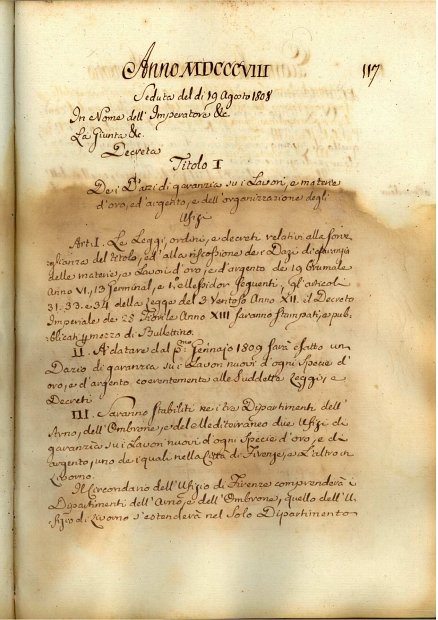 Anno MDCCCVIII 117
Seduta del dì 19 Agosto 1808
In Nome dell' Imperatore &c.
La Giunta &c.
Decreta
Titolo I
Dei Dazi di garanzia su i Lavori, e materie
d'oro, ed'argento, e dell'organizzazione degli
Ufizi
Art. I. Le Leggi, ordini, e decreti relativi alla sorve
glianza del titolo, ed'alla riscossione dei Dazi di garanzia
delle materie, e Lavori d'oro, ed'argento de 19 Brumale
Anno VI, 13 Germinal, e i, ellessidor seguenti, gli articoli
31. 33. e 34 della Legge del 3 Ventoso Anno XII. il Decreto
Imperiale de 28 Fiorile Anno XIII saranno stampati, e pub-
blicati p mezzo di Bullettino.
II. A'datare dal Pmo Gennajo 1809 sarà esatto un
Dazio di garanzia su i Lavori nuovi d'ogni specie d'
oro, e d'argento, coerentemente alle suddette Leggi, e
Decreti
III. Saranno stabiliti ne i tre Dipartimenti dell'
Arno, dell'Ombrone, e del Mediterraneo due Ufizi di
garanzia su i Lavori nuovi d'ogni specie d'oro, e d'
argento, uno de i quali nella Città di Firenze, e L'altro in
Livorno.
Il Circondario dell'Ufizio di Firenze comprenderà i
Dipartimenti dell'Arno, e dell'Ombrone, quello dell'U-
fizio di Livorno s'estenderà nel Solo Dipartimento